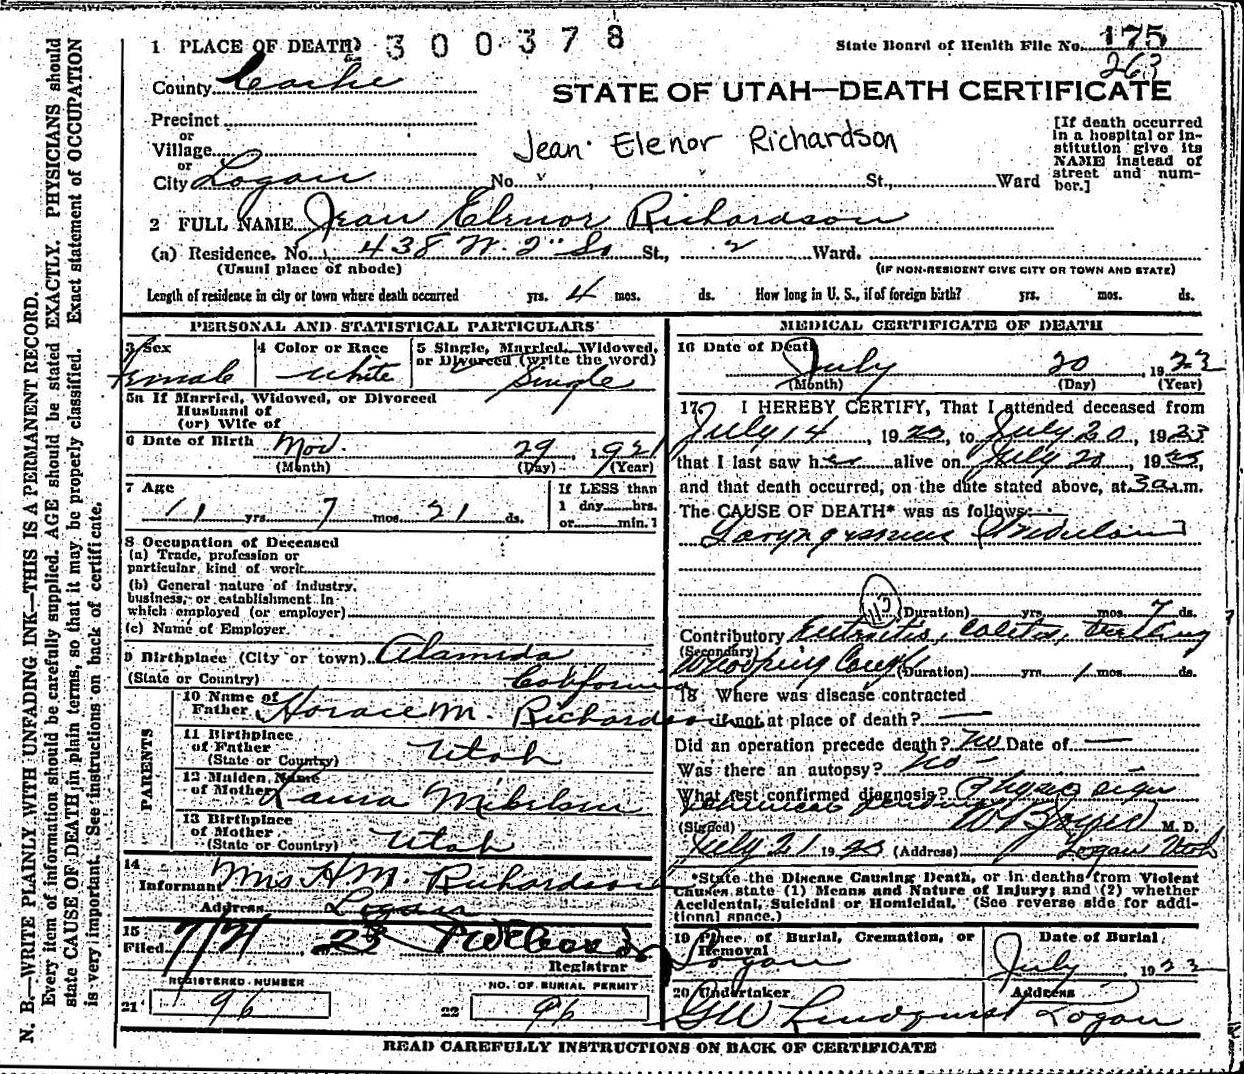 1 PLACE OF DEATH 300378 State Board of Health File No. 175
263
County Cache
STATE OF UTAH—DEATH CERTIFICATE
Precinct
or
Village
or
City Logan No. St., Ward
Jean Elenor Richardson
[If death occurred
in a hospital or in-
stitution give its
NAME instead of
street and num-
ber.]
2 FULL NAME Jean Elenor Richardson
(a) Residence. No. 438 W. 2" So St., 2 Ward.
(Usual place of abode) (IF NON-RESIDENT GIVE CITY OR TOWN AND STATE)
Length of residence in city or town where death occurred yrs. 4 mos. ds. How long in U. S., if of foreign birth? yrs. mos. ds.
PERSONAL AND STATISTICAL PARTICULARS
3 Sex
Female
4 Color or Race
White
5 Single, Married, Widowed,
or Divorced (write the word)
Single
5a If Married, Widowed, or Divorced
Husband of
(or) Wife of
6 Date of Birth Nov. 29, 1921
(Month) (Day) (Year)
7 Age
1 yrs. 7 mos. 21 ds.
If LESS than
1 day hrs.
or min.
8 Occupation of Deceased
(a) Trade, profession or
particular, kind of work
(b) General nature of industry,
business, or establishment in
which employed (or employer)
(c) Name of Employer
9 Birthplace (City or town) Alameda
(State or Country) California
PARENTS
10 Name of
Father Horace M. Richardson
11 Birthplace
of Father
(State or Country) Utah
12 Maiden Name
of Mother
13 Birthplace
of Mother
(State or Country) Utah
14
Informant Mrs H M. Richardson
Address Logan
15
Filed 7/21, 23
Registrar
REGISTERED NUMBER
21 96
NO. OF BURIAL PERMIT
22 96
MEDICAL CERTIFICATE OF DEATH
16 Date of Death
July 20, 1923
(Month) (Day) (Year)
17 I HEREBY CERTIFY, That I attended deceased from
July 14, 1923, to July 20, 1923
that I last saw her alive on July 20, 1923,
and that death occurred, on the date stated above, at 3 a.m.
The CAUSE OF DEATH* was as follows:
Laryngismus Stridulous
113
(Duration) yrs. mos. 7 ds.
Contributory
(Secondary)
Whooping Cough (Duration) yrs. 1 mos. ds.
18 Where was disease contracted
if not at place of death? —
Did an operation precede death? No Date of —
Was there an autopsy? no
What test confirmed diagnosis?
(Signed) M. D.
July 21 1923 (Address) Logan Utah
*State the Disease Causing Death, or in deaths from Violent
Causes state (1) Means and Nature of Injury; and (2) whether
Accidental, Suicidal or Homicidal. (See reverse side for addi-
tional space.)
19 Place of Burial, Cremation, or
Removal
Logan
Date of Burial
July, 1923
20 Undertaker
G W Lindquist
Address
Logan
READ CAREFULLY INSTRUCTIONS ON BACK OF CERTIFICATE
N. B.—WRITE PLAINLY WITH UNFADING INK—THIS IS A PERMANENT RECORD.
Every item of information should be carefully supplied. AGE should be stated EXACTLY. PHYSICIANS should
state CAUSE OF DEATH in plain terms, so that it may be properly classified. Exact statement of OCCUPATION
is very important. See instructions on back of certificate.